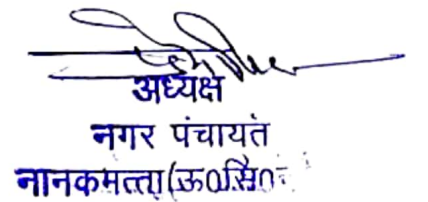 अध्यक्ष
नगर पंचायत
नानकमत्ता(ऊ0सि0